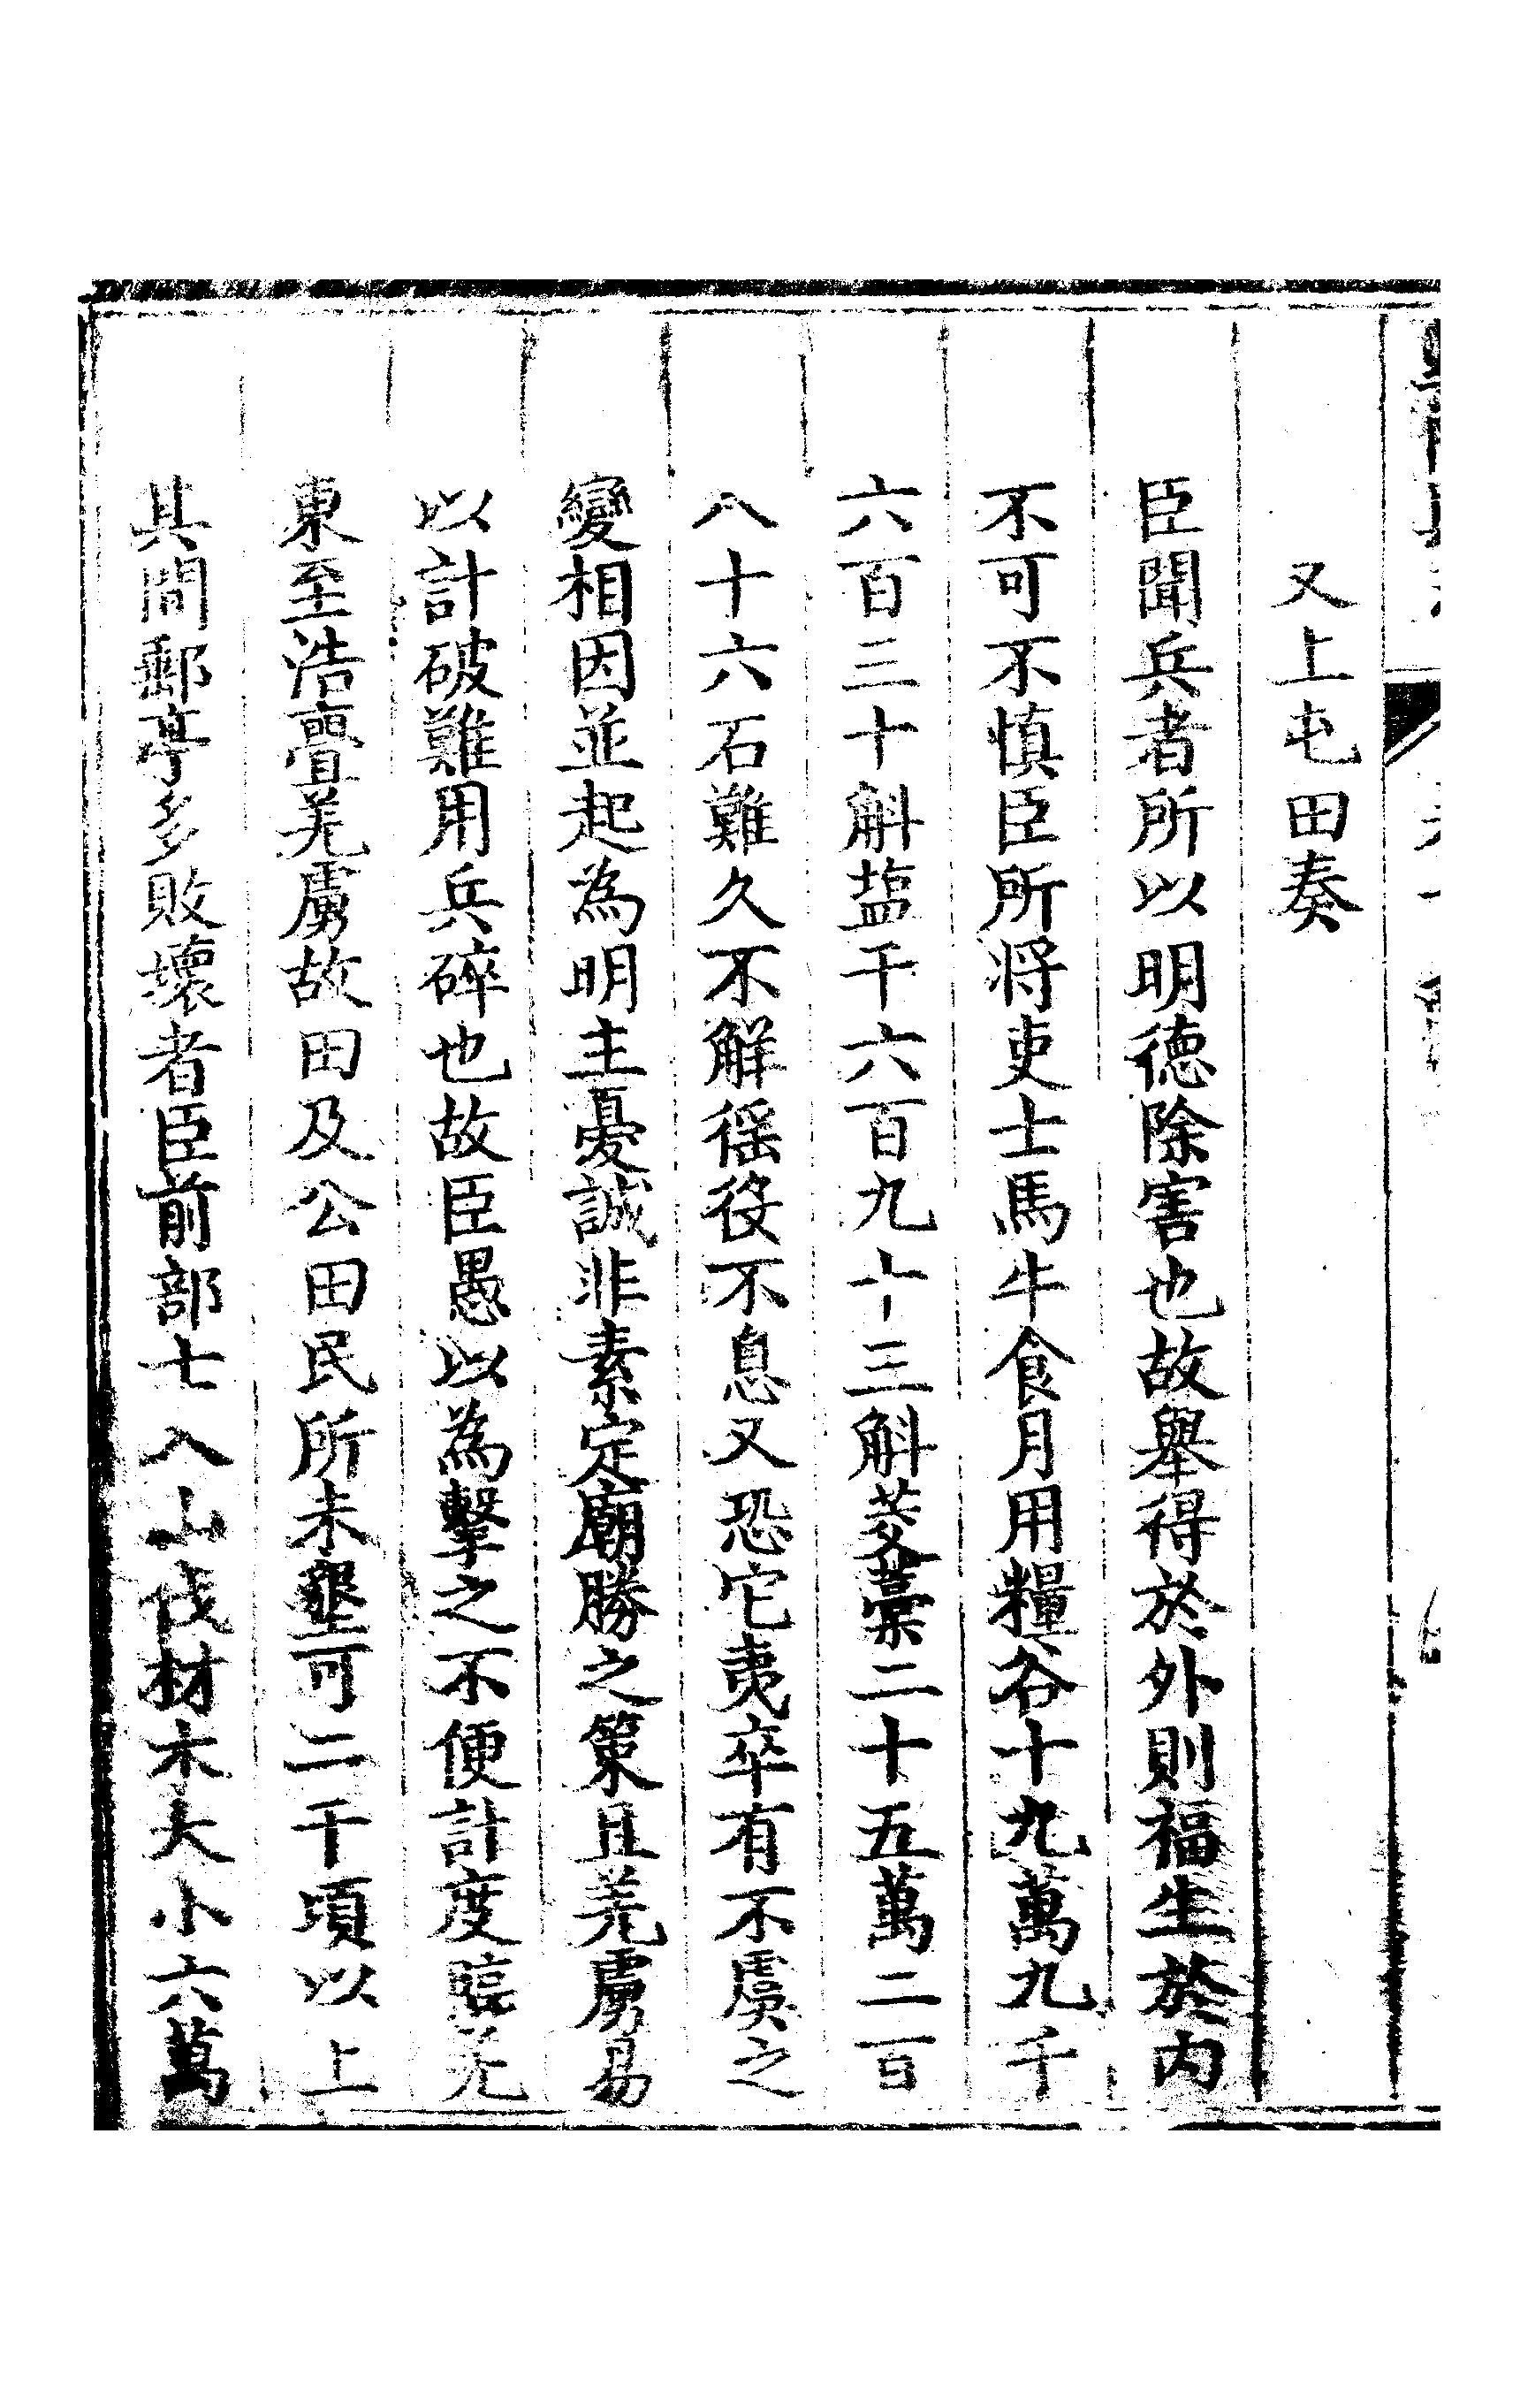 又上屯田奏
臣聞兵者所以明德除害也故舉得於外則福生於内
不可不慎臣所将吏士馬牛食月用糧谷十九萬九千
六百三十斛盐千六百九十三斛茭藁二十五萬二百
八十六石難久不解徭役不息又恐它夷卒有不虞之
變相因並起為明主憂誠非素定廟勝之策且羌虜易
以計破難用兵碎也故臣愚以為擊之不便計度臨羌
東至浩亹羌虜故田及公田民所未墾可二千頃以上
其間郵亭多敗壞者臣前部士入山伐材木大小六萬